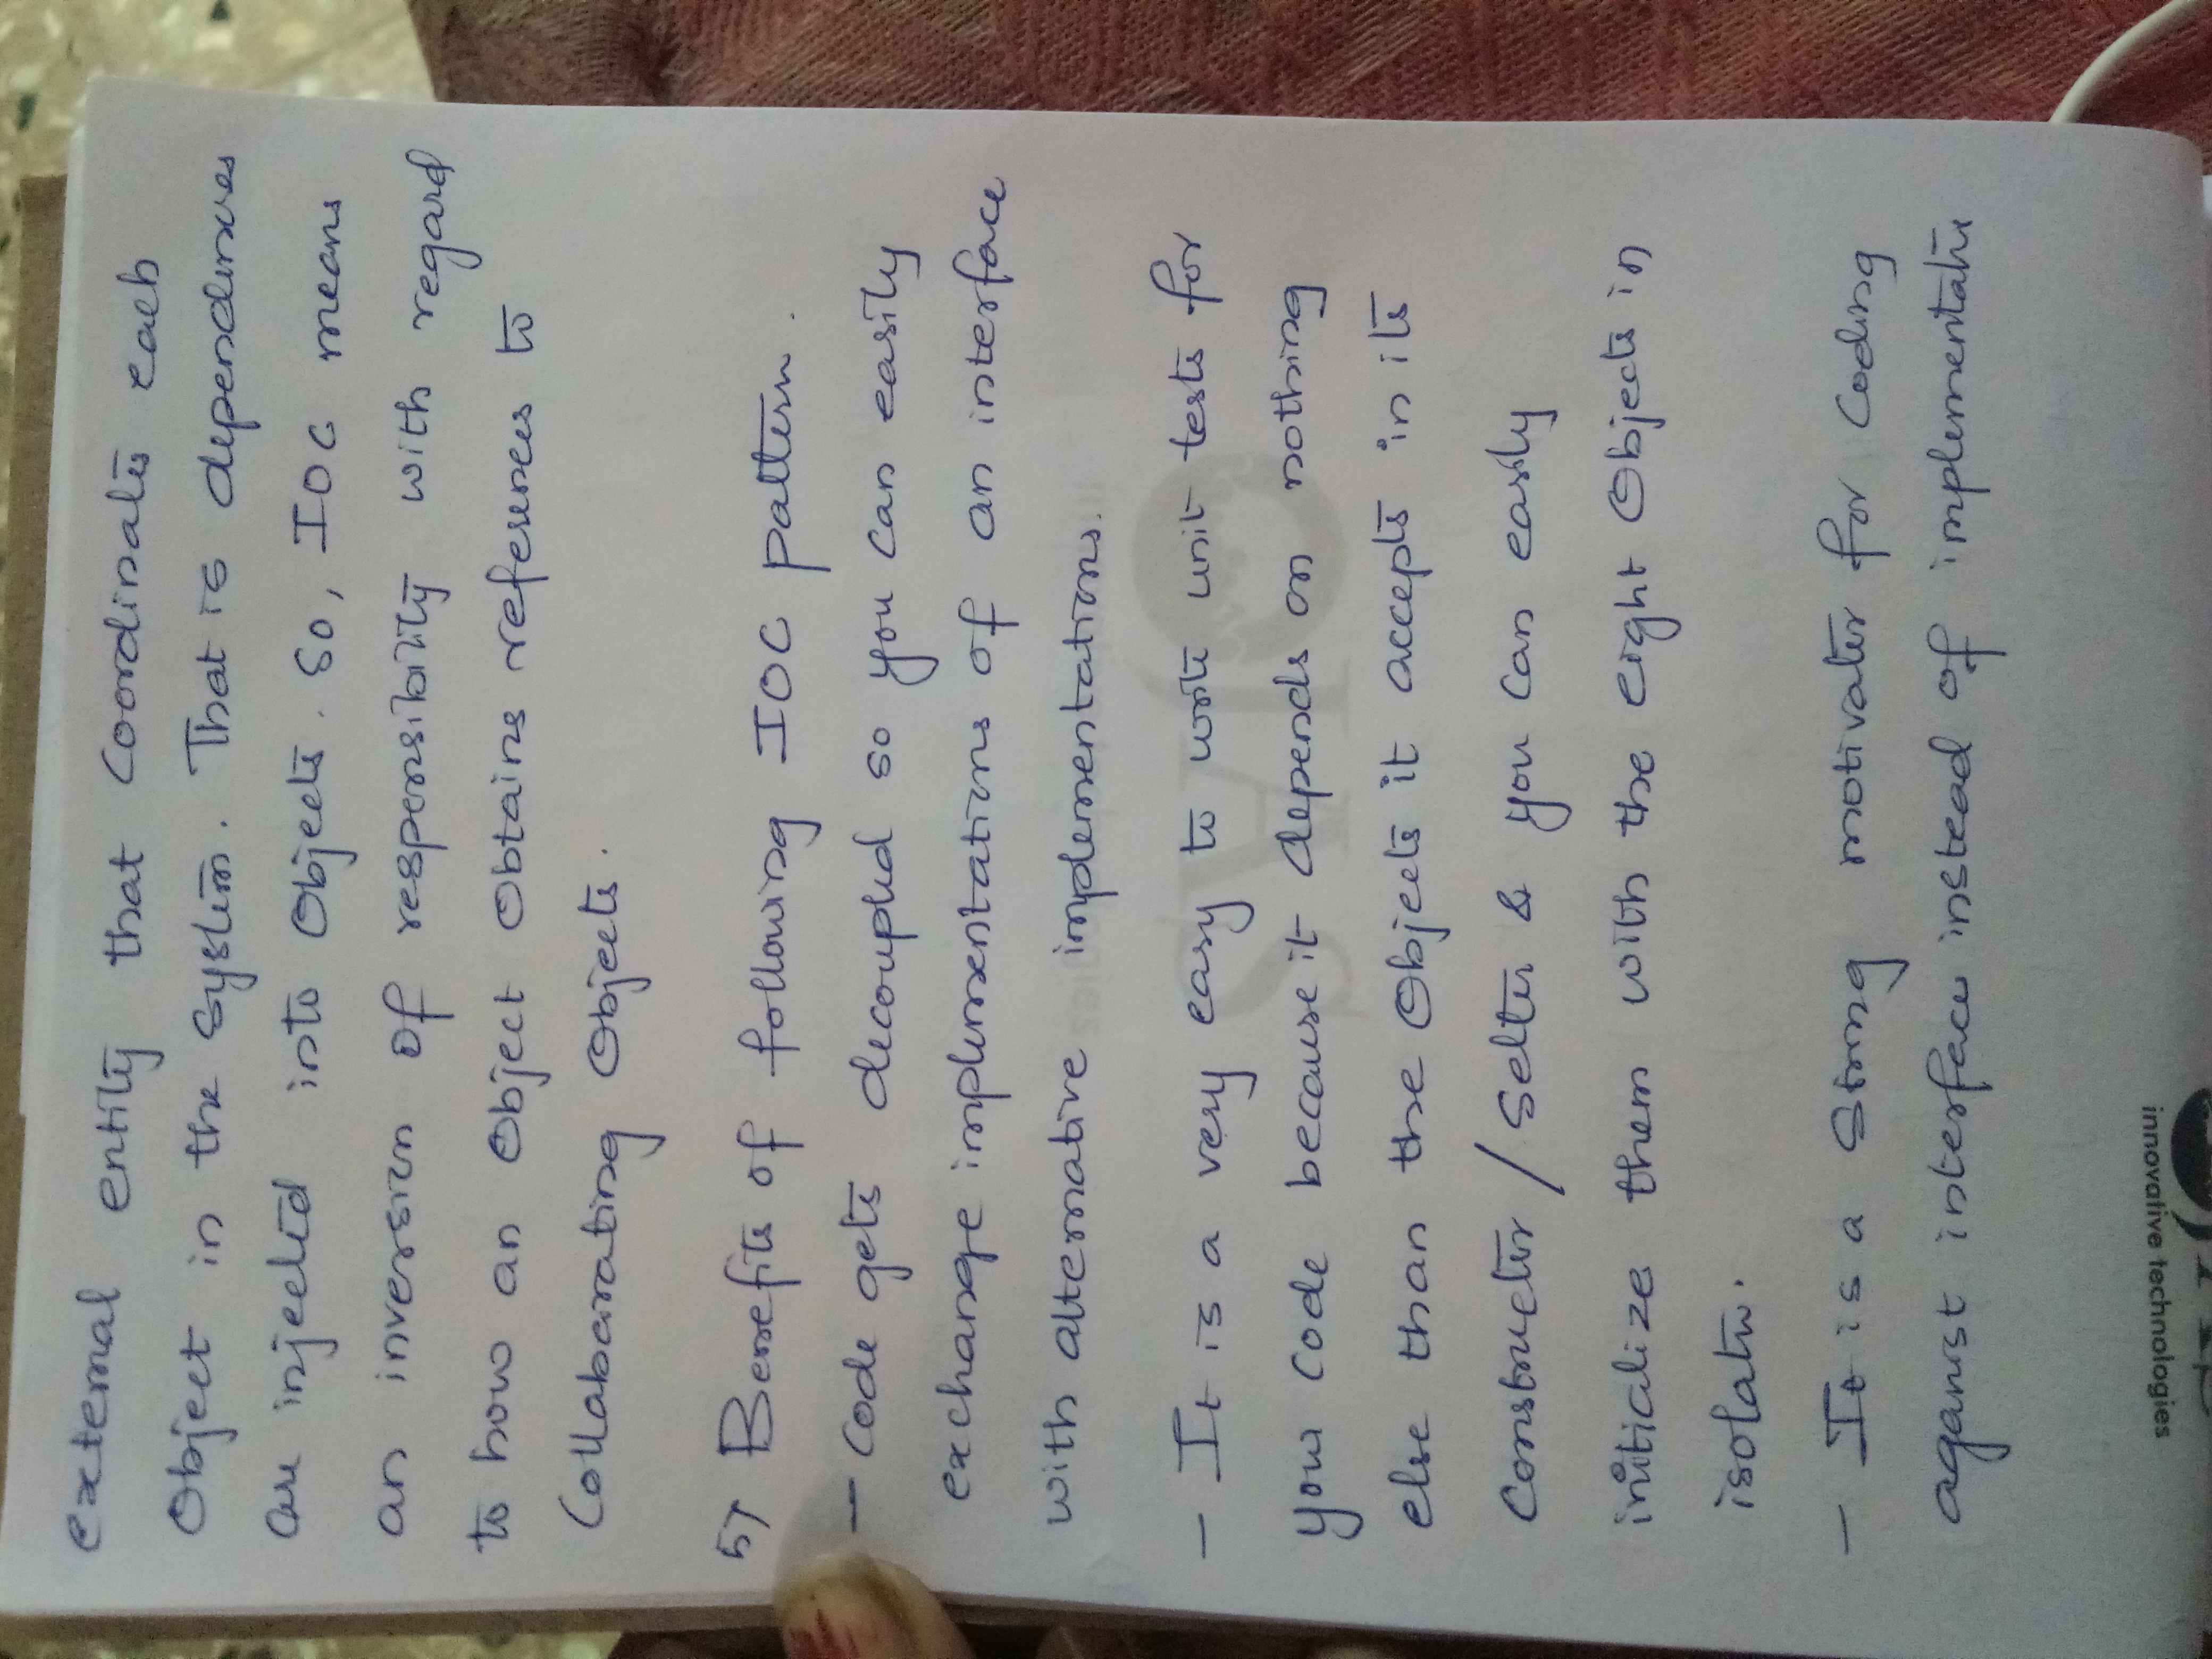 external entity that coordinates each
Object in the system. That is dependencies
are injected into Objects. So, IOC means
an inversion of responsibility with regard
to how an Object Obtains references to
Collaborating Objects.
5) Benefits of following IOC pattern.
- Code gets decoupled so you can easily
exchange implementations of an interface
with alternative implementations.
- It is a very easy to write unit tests for
your code because it depends on nothing
else than the Objects it accepts in its
Constructor / Setter & you can easily
initialize them with the right Objects in
isolatn.
- It is a strong motivator for coding
against interface instead of implementatn
innovative technologies